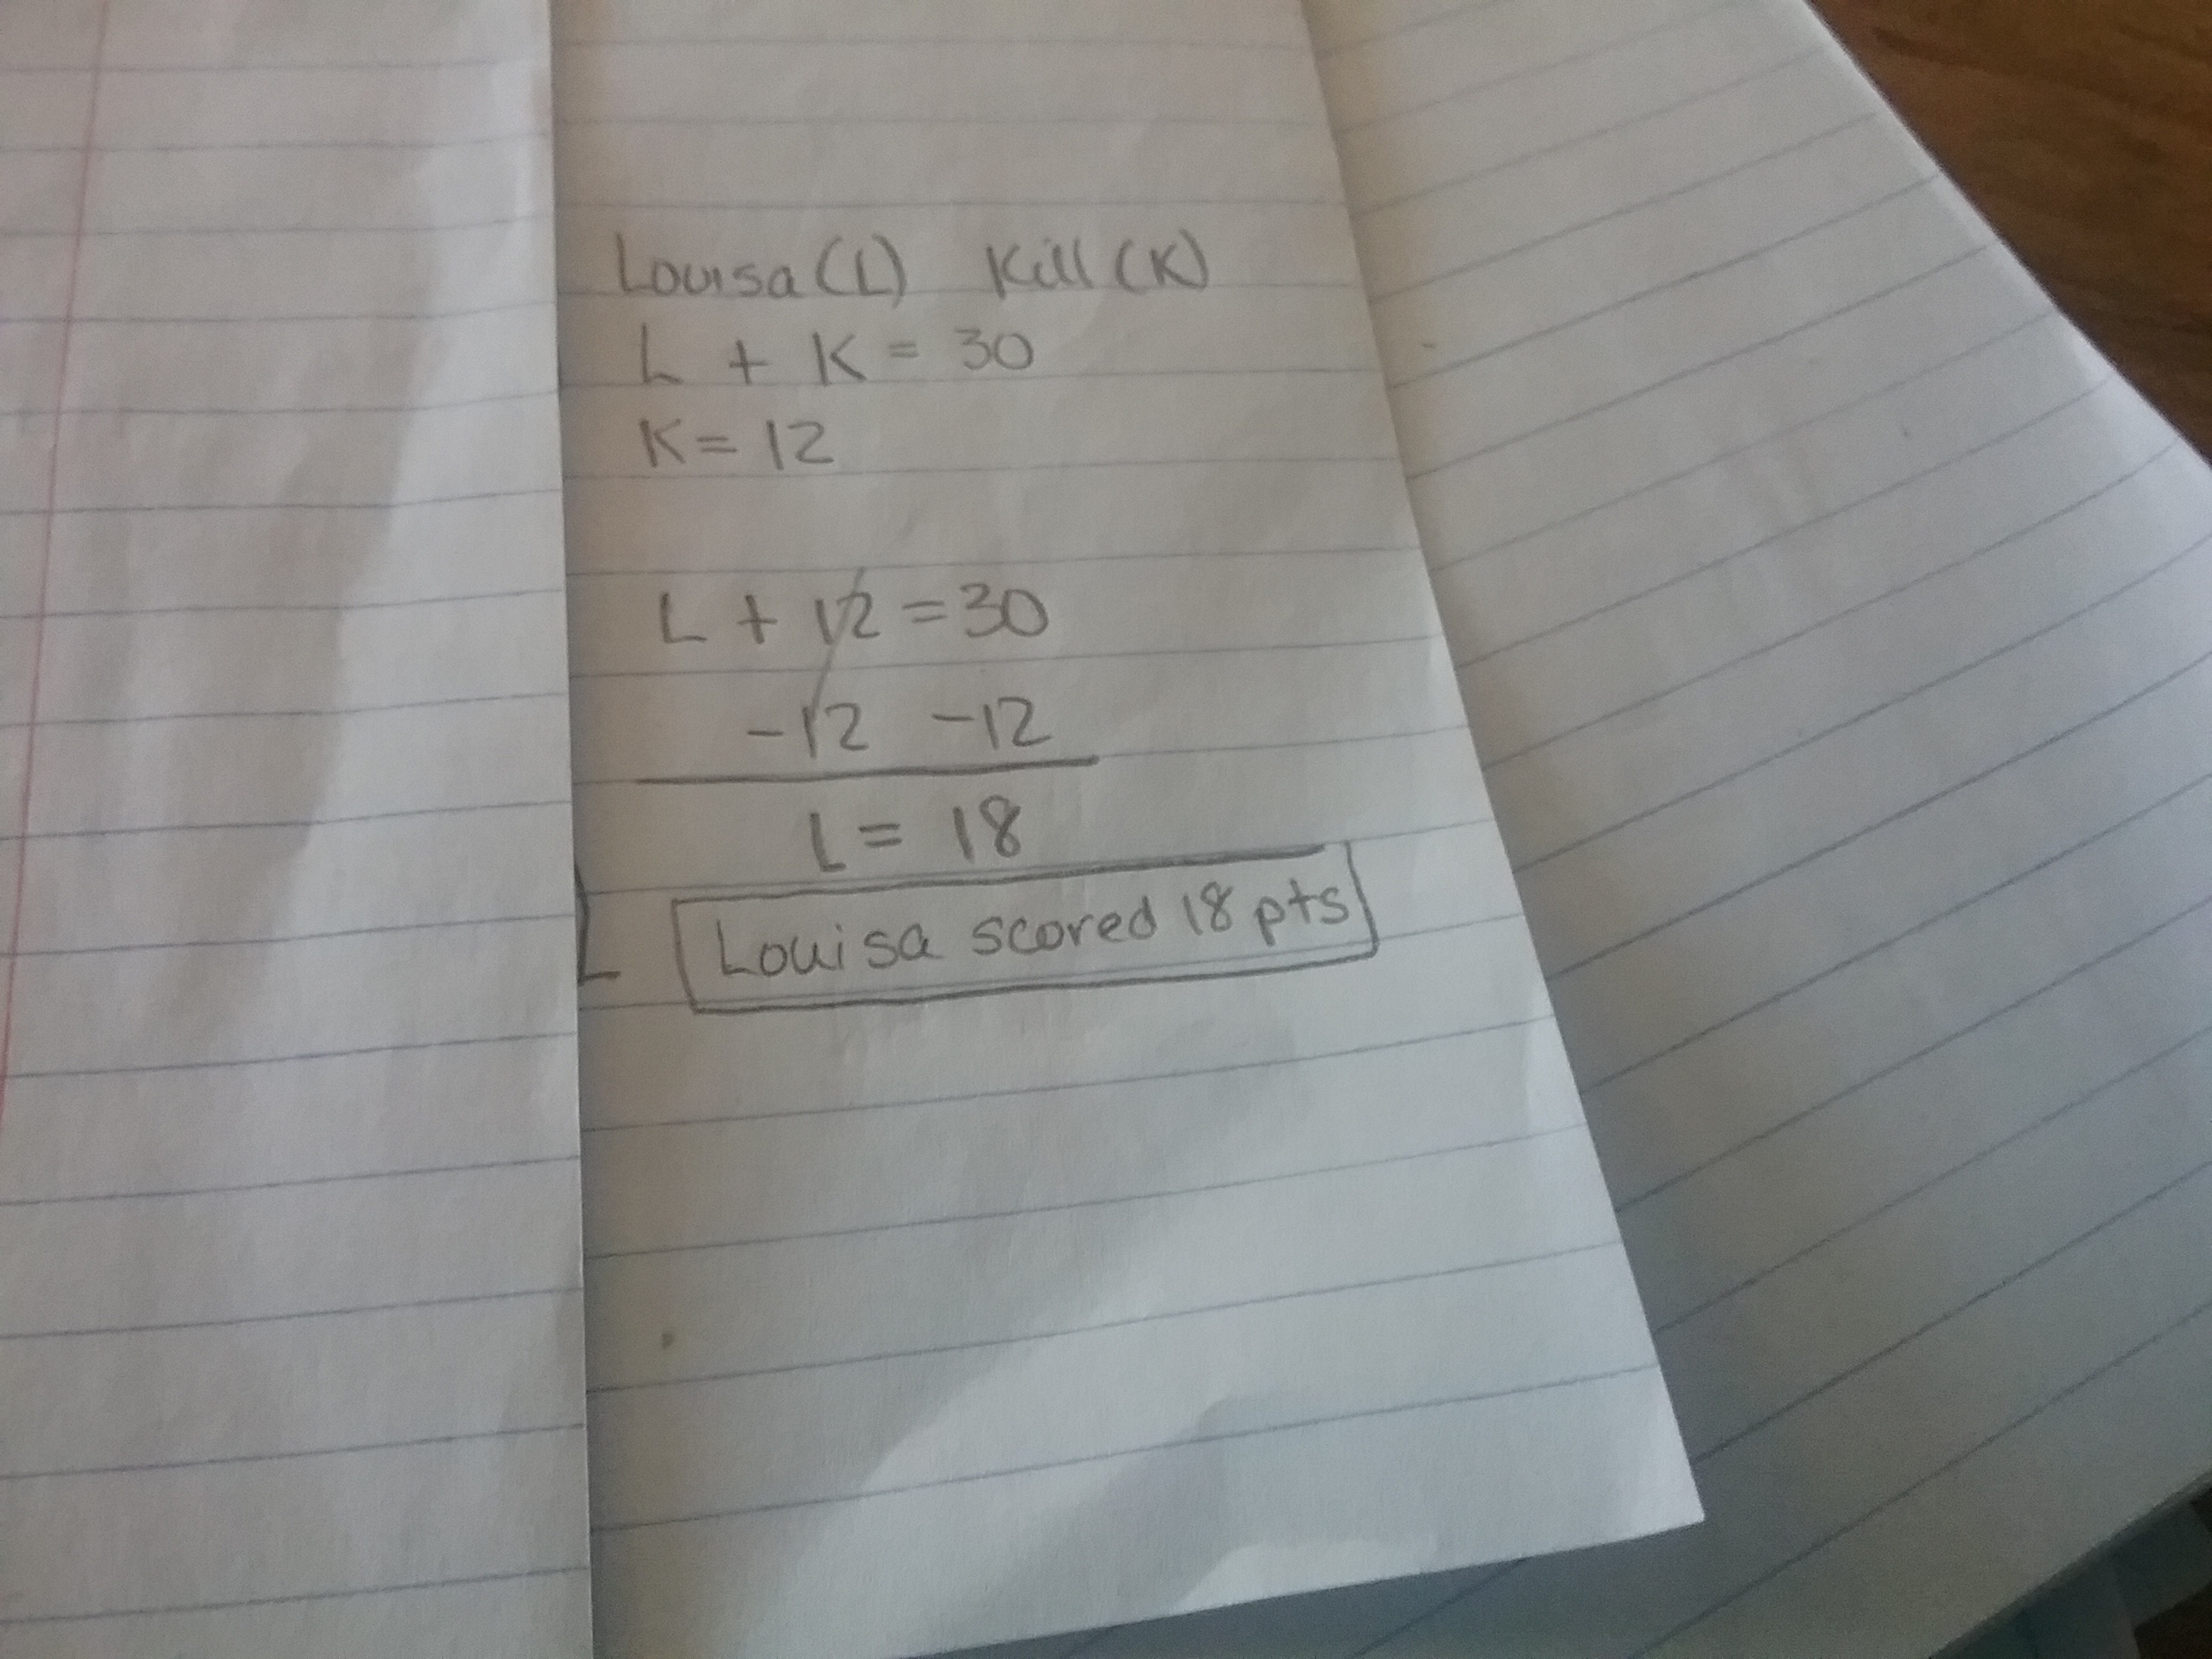 Louisa (L) Kill (K)
L + K = 30
K = 12
L + 12 = 30
-12 -12
L = 18
L Louisa scored 18 pts